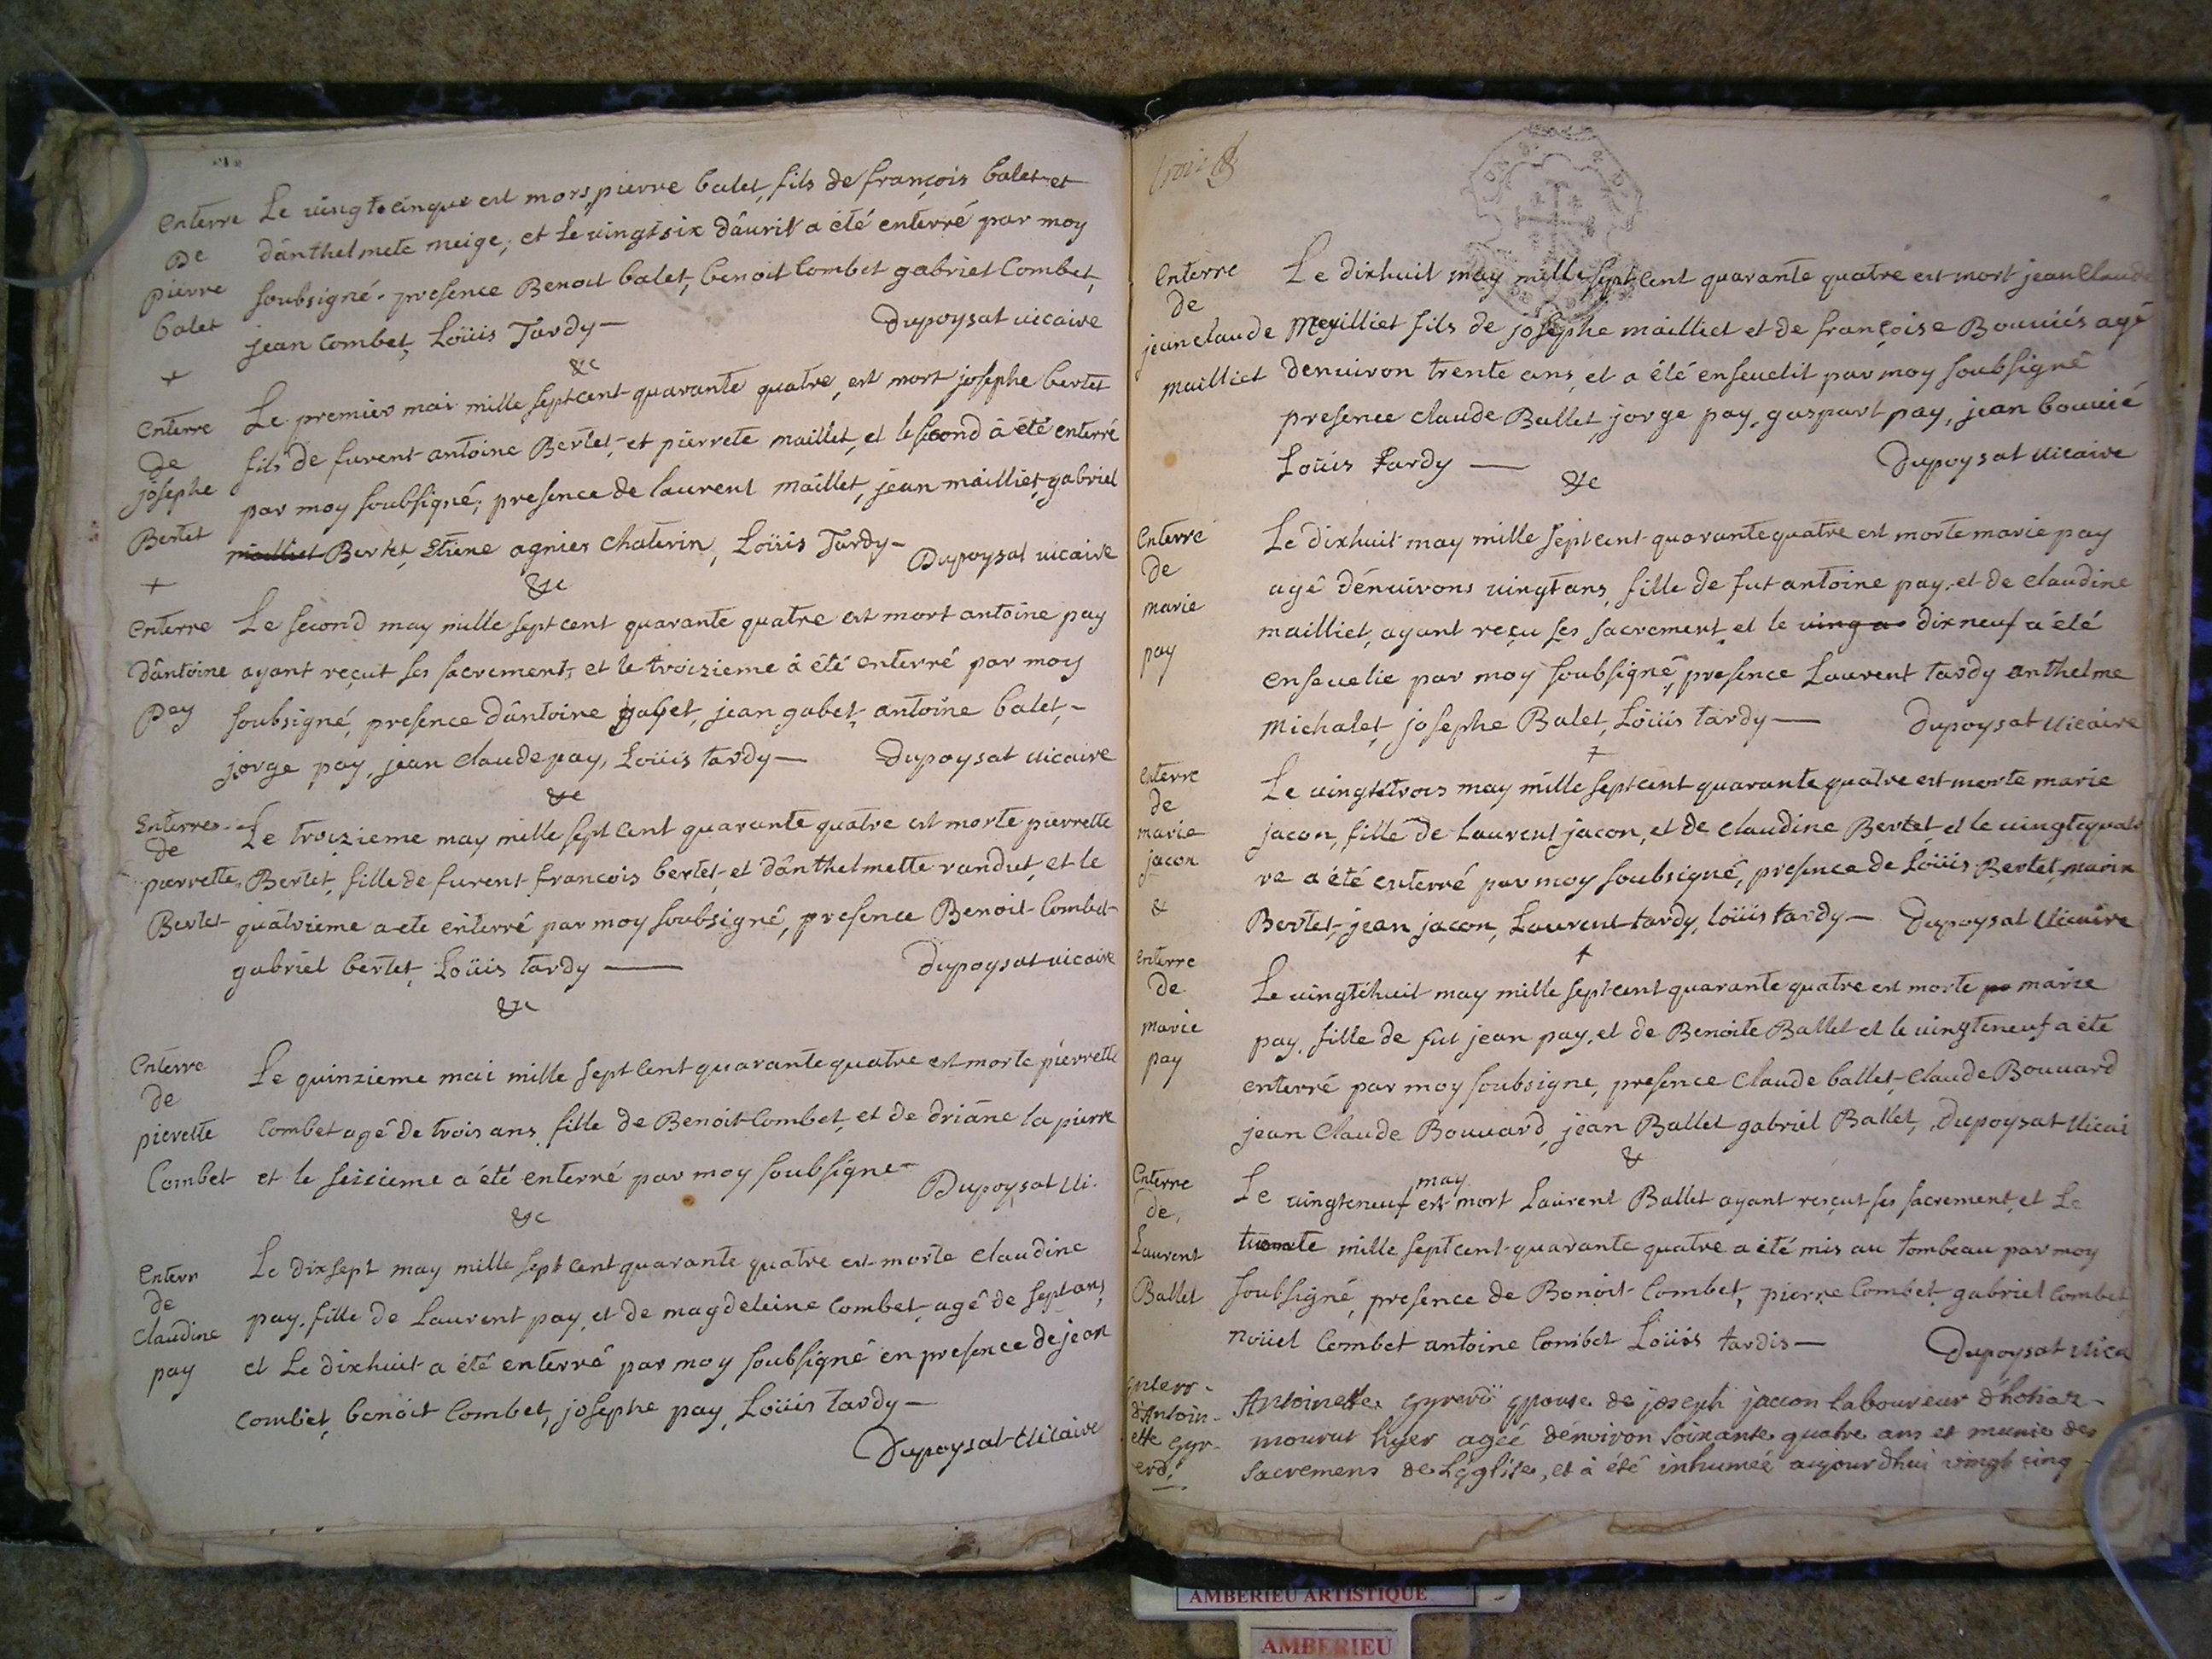 enterre
De
pierre
balet
+
Le vingt cinque est mors pierre balet, fils de françois balet et
dânthelmete neige, et le vingt six dâuril a été enterré par moy
soubsigné. presence Benoit balet, benoit Combet gabriel Combet,
jean Combet, Loüis Tardy — Dupoysat uicaire
&c
enterre
de
josephe
Bertet
+
Le premier mai mille septcent quarante quatre, est mort josephe bertet
fils de furent antoine Bertet, et pierrete maillet, et le second à été enterré
par moy soubsigné; presence de laurent maillet, jean mailliet, gabriel
mailliet Bertet, Etiene agnier Chaterin, Loüis Tardy - Dupoysat uicaire
&c
enterre
dântoine
pay
Le second may mille sept cent quarante quatre est mort antoine pay
ayant reçut ses sacrement, et le troizieme à été enterré par moy
soubsigné, presence dântoine gabet, jean gabet, antoine balet, -
jorge pay, jean Claude pay, Loüis tardy — Dupoysat uicaire
&c
Enterre
de
pierrette
Bertet
Le troizieme may mille sept cent quarante quatre est morte pierrette
Bertet, fille de furent françois bertet, et dânthelmette randut, et le
quâtrieme a ete enterré par moy soubsigné, presence Benoit Combet
gabriel bertet, Loüis tardy — Dupoysat uicaire
&c
enterre
de
pierette
Combet
Le quinzieme mai mille sept cent quarante quatre est morte pierrette
Combet agé de trois ans fille de Benoit Combet, et de driâne la pierre
et le seizieme a été enterré par moy soubsigne - Dupoysat Ui.
&c
Enterr
de
Claudine
pay
Le dixsept may mille sept cent quarante quatre est morte Claudine
pay. fille de Laurent pay, et de magdeleine Combet, agé de sept ans,
et Le dixhuit a été enterré par moy soubsigné en presence de jean
Combet, benoit Combet, josephe pay, Loüis tardy —
Dupoysat Uicaire
Enterre
de
jean claude
mailliet
Le dixhuit may mille sept cent quarante quatre est mort jean Claude
Meyilliet fils de josephe mailliet et de françoise Bouuiés agé
denuiron trente ans, et a été enseuelit par moy soubsigné
presence claude Ballet, jorge pay, gaspart pay, jean bouuié
Loüis tardy — Dupoysat uicaire
&c
Enterré
de
marie
pay
Le dixhuit may mille sept cent quarante quatre est morte marie pay
agé dénuirons uingt ans, fille de fut antoine pay, et de claudine
mailliet, ayant reçu ses sacrement, et le uing a dix neuf a été
enseuelie par moy soubsigné, presence Laurent tardy anthelme
Michalet, josephe Balet, Loüis tardy — Dupoysat Uicaire
+
enterre
de
marie
jacon
&
Le uingt trois may mille sept cent quarante quatre est morte marie
jacon, fille de Laurent jacon, et de claudine Bertet et le uingtequat
re a été enterré par moy soubsigné, presence de Loüis Bertet, marin
Bertet, jean jacon, Laurent tardy, loüis tardy — Dupoysat Uicaire
+
enterre
de
Marie
pay
Le uingtéhuit may mille sept cent quarante quatre est morte pa marie
pay. fille de fut jean pay, et de Benoite Ballet et le uingteneuf a ete
enterré par moy soubsigne, presence Claude ballet, Claude Bouuard
jean Claude Bouuard, jean Ballet gabriel Ballet, Dupoysat Uicai
&
Enterre
de
Laurent
Ballet
Le uingteneuf may est mort Laurent Ballet ayant resçut ses sacrement, et Le
trente mille sept cent quarante quatre a été mis au tombeau par moy
soubsigné, presence de Bonoit Combet, pierre Combet gabriel Combet,
noüel Combet antoine Combet Loüis tardis — Dupoysat Uica
Enterr-
d'Antoin-
ette Gyr-
erd.
Antoinette Gyrerd epouse de joseph jacon laboureur
mourut hyer ageé dénviron soixante quatre ans et munie des
sacremens de L'église, et à été inhumeé aujourdhui vingt cinq
AMBERIEU ARTISTIQUE
AMBERIEU